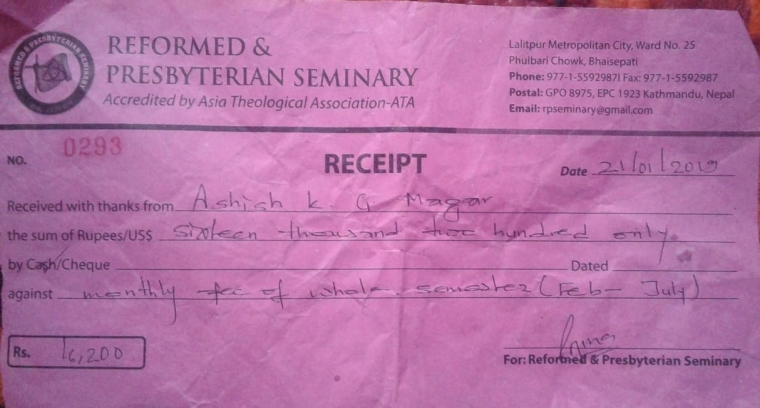 REFORMED & PRESBYTERIAN SEMINARY
REFORMED &
PRESBYTERIAN SEMINARY
Accredited by Asia Theological Association-ATA
Lalitpur Metropolitan City, Ward No. 25
Phulbari Chowk, Bhaisepati
Phone: 977-1-5592987I Fax: 977-1-5592987
Postal: GPO 8975, EPC 1923 Kathmandu, Nepal
Email: rpseminary@gmail.com
NO. 0293
RECEIPT
Date 21/01/2019
Received with thanks from Ashish k. G Magar
the sum of Rupees/US$ sixteen thousand two hundred only.
by Cash/Cheque Dated
against monthly fee of whole semester (Feb - July)
Rs. 16,200
For: Reformed & Presbyterian Seminary